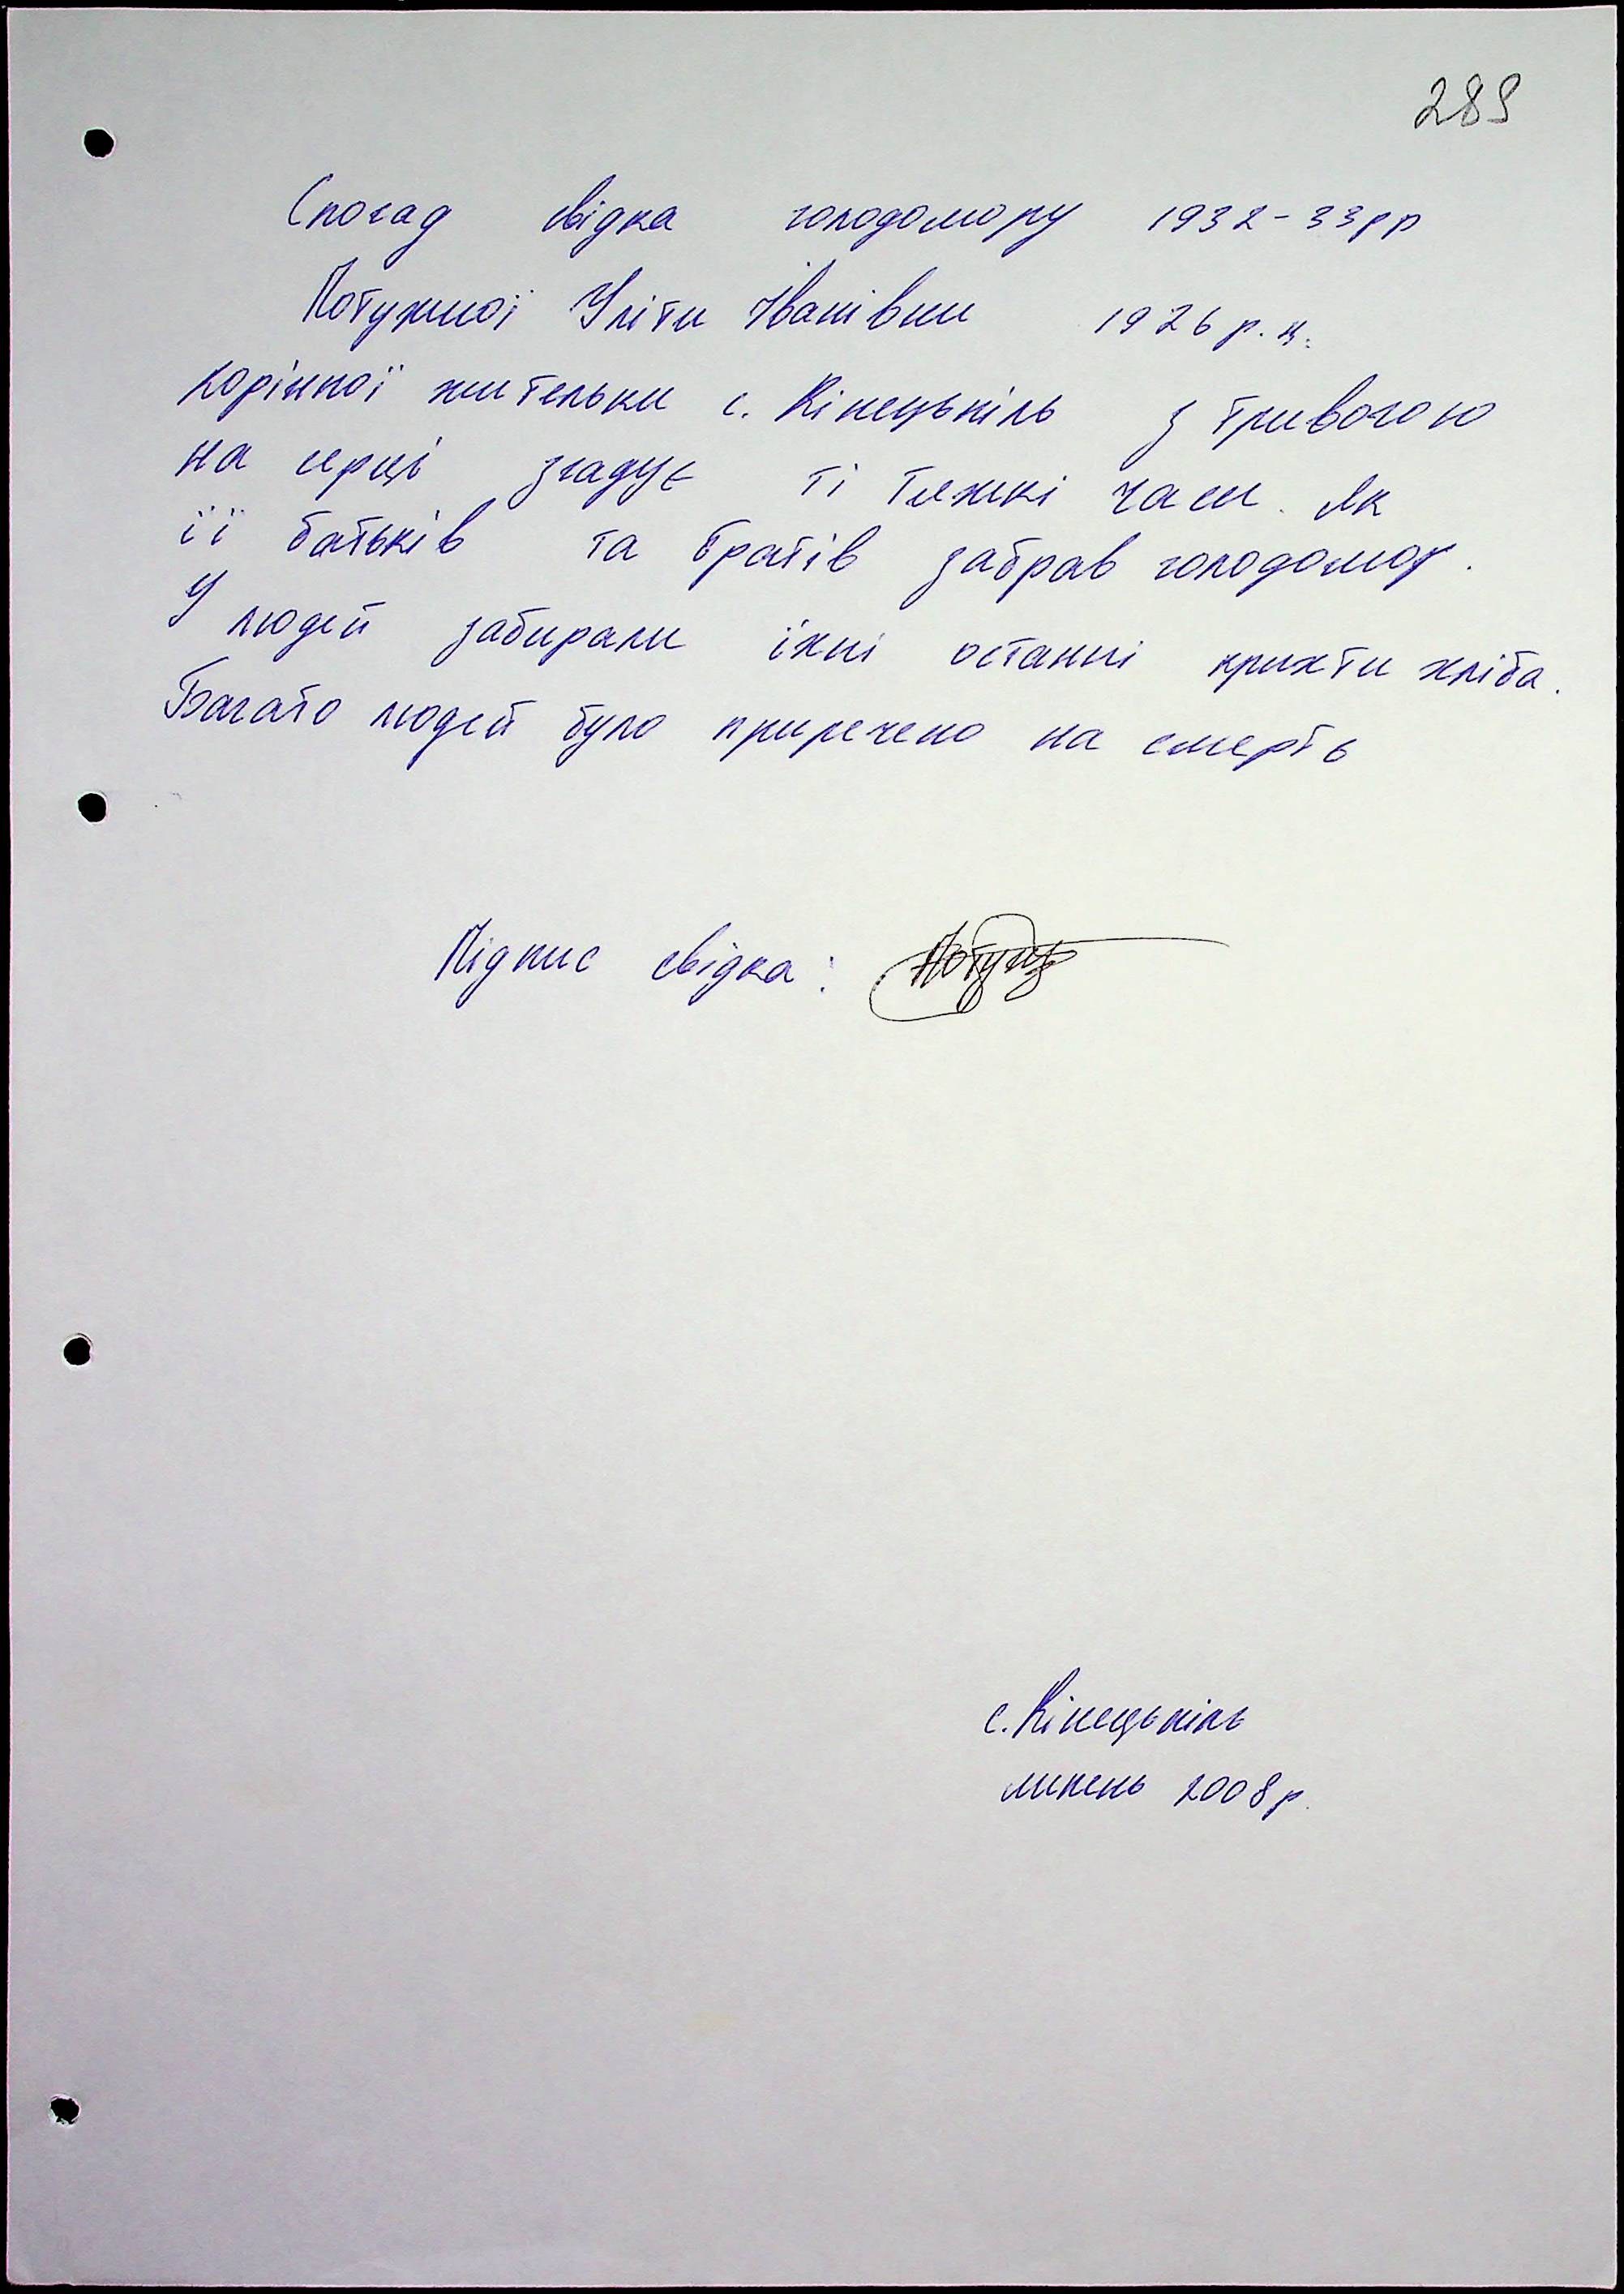 289
Спогад свідка голодомору 1932-33рр
Потужної Уліти Іванівни 1926 р.н.
корінної жительки с. Кінецьпіль з тривогою
на серці згадує ті тяжкі часи. Як
її батьків та братів забрав голодомор.
У людей забирали їхні останні крихти хліба.
Багато людей було приречено на смерть
Підпис свідка:
с. Кінецьпіль
липень 2008р.